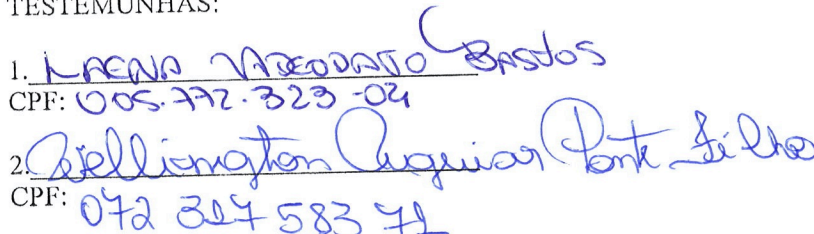 TESTEMUNHAS:
1. LAENA ADEODATO BASTOS
CPF: 005.772.323-04
2. Wellington Aguiar Ponte Filho
CPF: 072 317 583 71